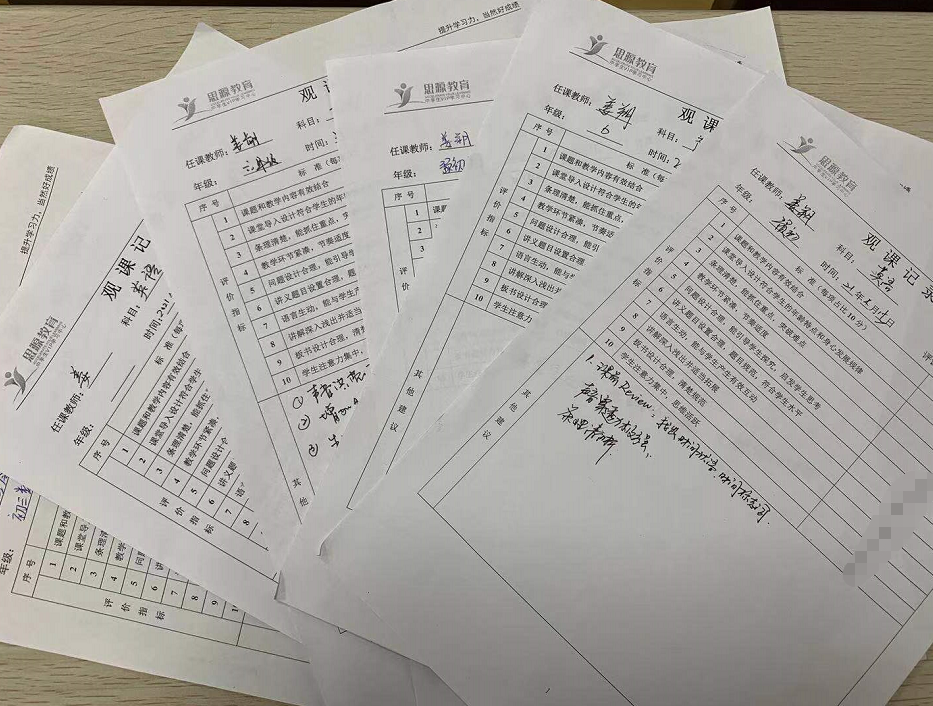 提升学习力，当然好成绩
观课记
科目：英语
时间：2021
思源教育
任课教师：姜
年级：
序号
标准（每
1 课题和教学内容有效结合
2 课堂导入设计符合学生
3 条理清楚，能抓住
4 教学环节紧凑，
5 问题设计合
6 讲义题
7 语
8
评价指标
年级：初三
序号
1 课题和教
2 课堂导
3 条理清
4 教学
5 问题
6 讲
7
8
9
评价指标
提升学习力，当然好成绩
思源教育
观课
任课教师：姜朔
科目：
年级：三年级
时间：
序号
标准（每
1 课题和教学内容有效结合
2 课堂导入设计符合学生的年
3 条理清楚，能抓住重点，突
4 教学环节紧凑，节奏适度
5 问题设计合理，能引导学
6 讲义题目设置合理，题
7 语言生动，能与学生产
8 讲解深入浅出并适当
9 板书设计合理，清楚
10 学生注意力集中，
评价指标
其他
思源教育
任课教师：姜朔
年级：
序号
1 课题
2 课
3
评价指标
思源教育
观课
任课教师：姜朔
科目：
年级：6
时间：2
序号
标准（每
1 课题和教学内容有效结合
2 课堂导入设计符合学生的年
3 条理清楚，能抓住重点，
4 教学环节紧凑，节奏适
5 问题设计合理，能引
6 讲义题目设置合理
7 语言生动，能与
8 讲解深入浅出
9 板书设计合理
10 学生注意力
评价指标
其他建议
思源教育
观课记录
任课教师：姜朔
科目：英语
年级：
时间：
序号
标准（每项占比10分）
评
1 课题和教学内容有效结合
2 课堂导入设计符合学生的年龄特点和身心发展规律
3 条理清楚，能抓住重点，突破难点
4 教学环节紧凑，节奏适度
5 问题设计合理，能引导学生探究，启发学生思考
6 讲义题目设置合理，题目规范，符合学生水平
7 语言生动，能与学生产生有效互动
8 讲解深入浅出并适当拓展
9 板书设计合理，清楚规范
10 学生注意力集中，思维活跃
其他建议
1. 课前Review，
条理清晰.
1